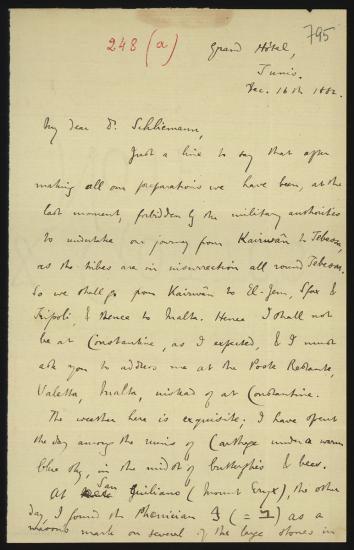 795
248 (a)
Grand Hôtel,
Tunis.
Dec. 16th 1882.
My dear Dr. Schliemann,
Just a line to say that after
making all our preparations we have been, at the
last moment, forbidden by the military authorities
to undertake our journey from Kairwân to Tebessa,
as the tribes are in insurrection all round Tebessa.
So we shall go from Kairwân to El-Jem, Sfax &
Tripoli, & thence to Malta. Hence I shall not
be at Constantine, as I expected, & I must
ask you to address me at the Poste Restante,
Valetta, Malta, instead of at Constantine.
The weather here is exquisite; I have spent
the day among the ruins of Carthage under a warm
blue sky, in the midst of butterflies & bees.
At San Giuliano (Mount Eryx), the other
day I found the Phœnician (= ) as a
mason's mark on several of the large stones in